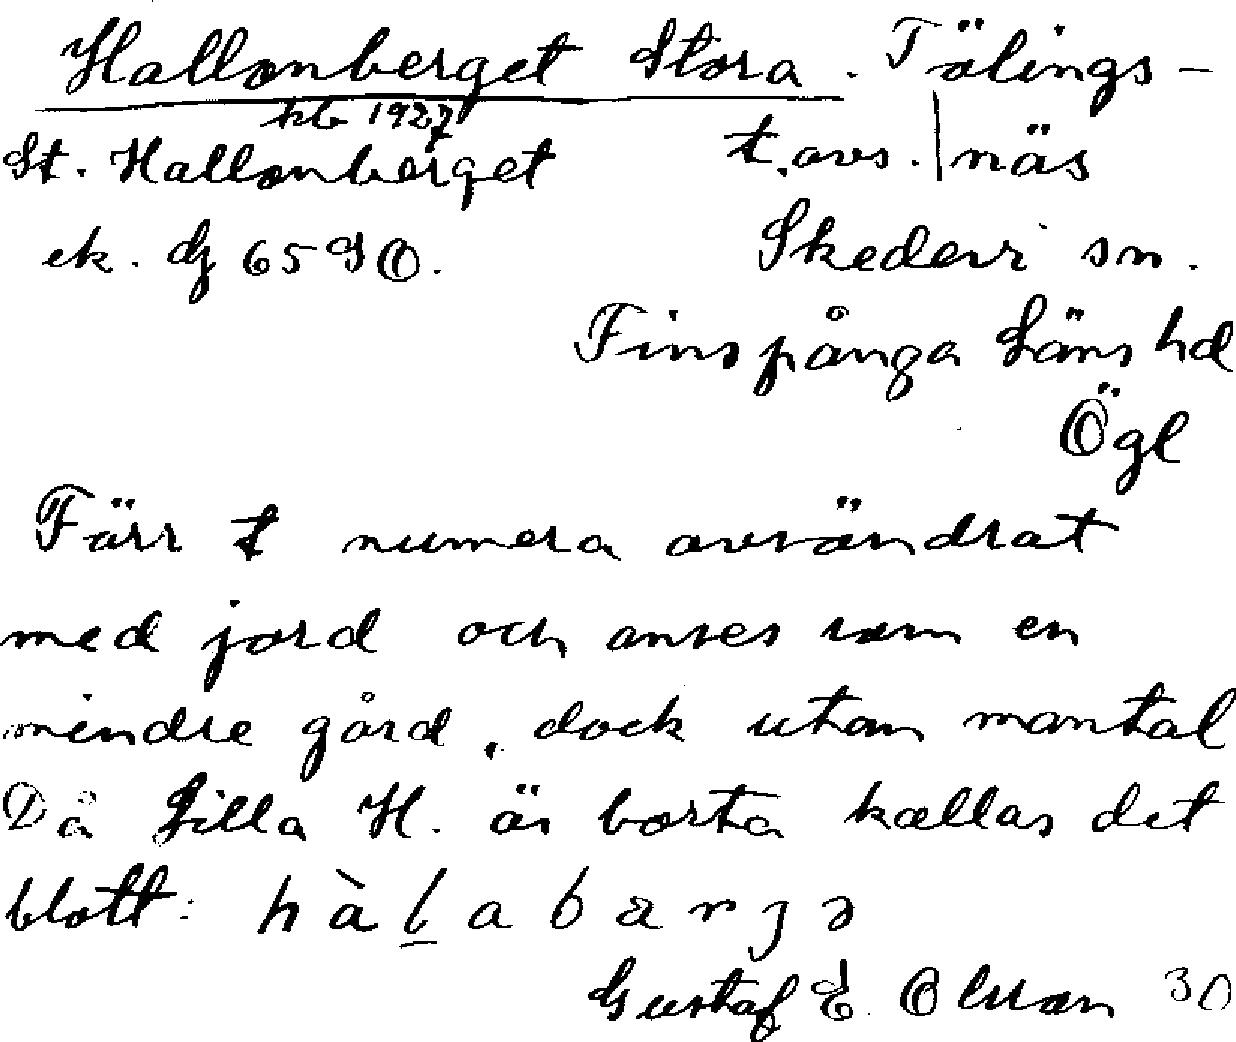 Hallonberget Stora. Tölings-
kb 1927
St. Hallonberget t. avs. | näs
ek. df 6590. Skedevi sn.
Finspånga Läns hd
Ögl
Förr t numera avsöndrat
med jord och anses som en
mindre gård, dock utan mantal
Då Lilla H. är borta kallas det
blott: hàlabarjə
Gustaf E. Olsson 30